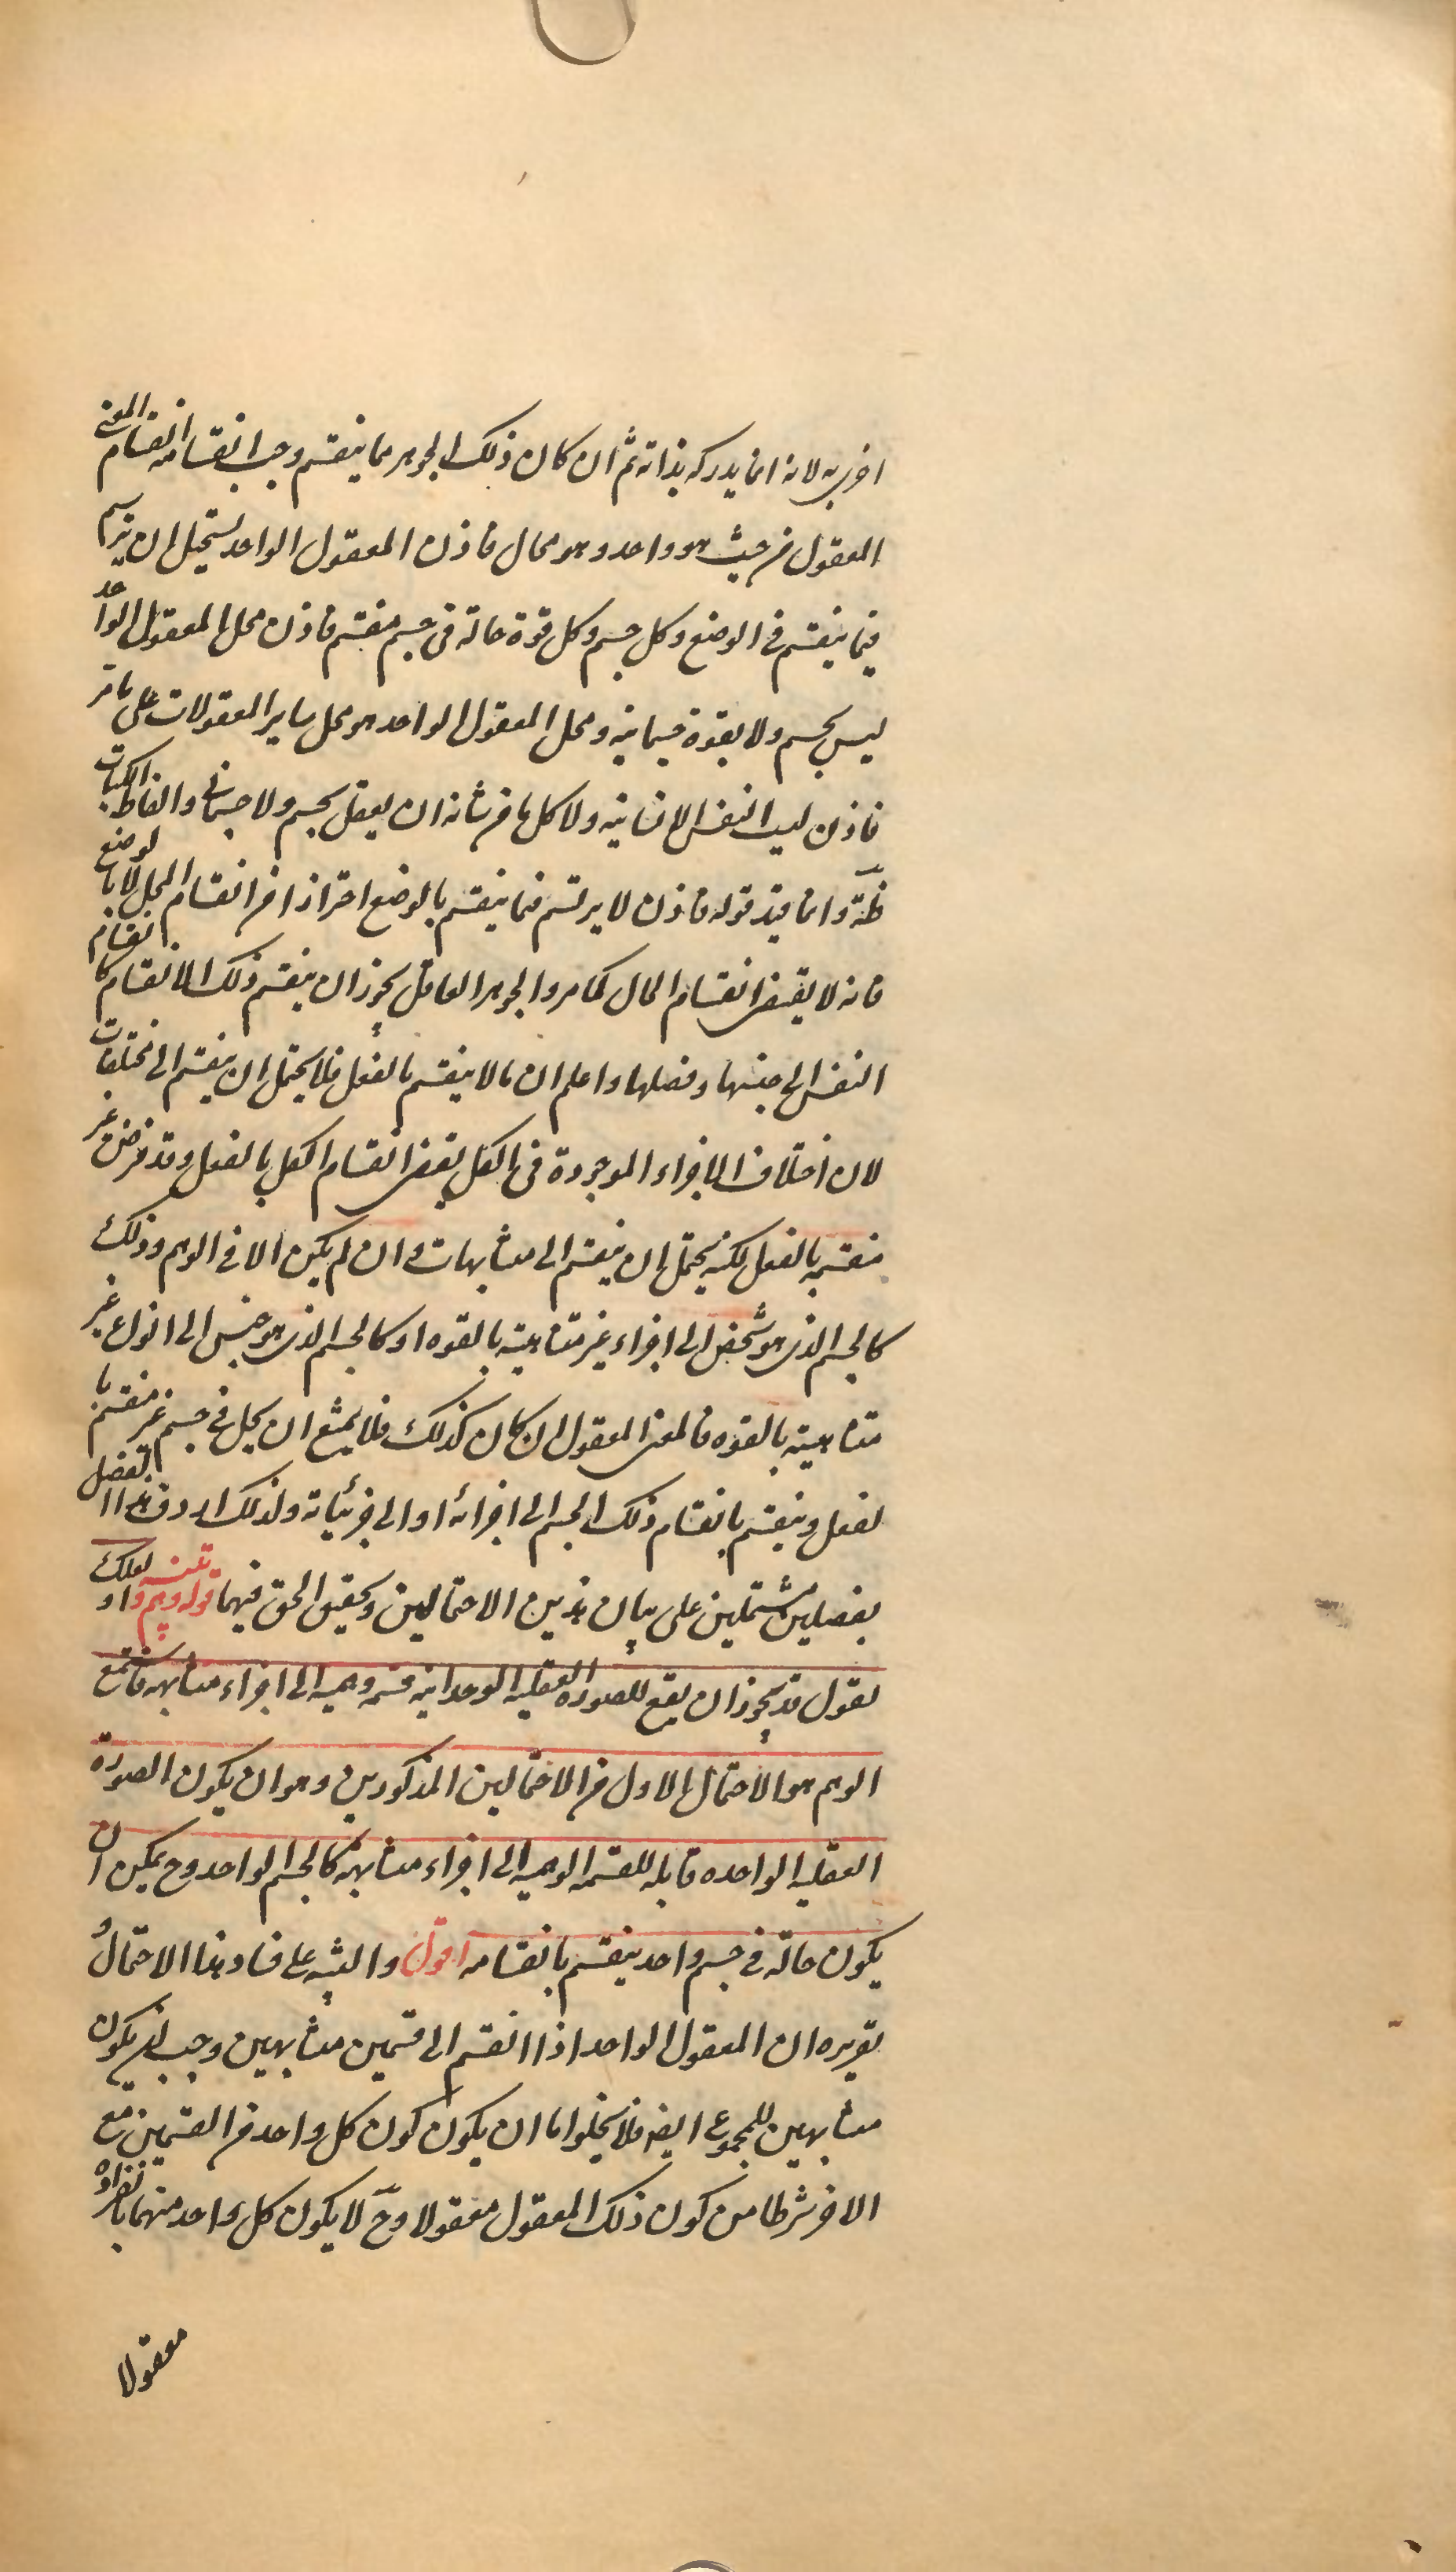 اخرى به لانه انما يدركه بذاته ثم ان كان ذلك الجوهر مما ينقسم وجب انقسامه انقسام المعنى
المعقول من حيث هو واحد وهو محال فاذن المعقول الواحد يستحيل ان يرتسم
فيما ينقسم فى الوضع وكل جسم وكل قوة حالة فى جسم منقسم فاذن محل المعقول الواحد
ليس بجسم ولا بقوة جسمانية ومحل المعقول الواحد هو محل ساير المعقولات على ما مر
فاذن ليست النفس الانسانية ولا كل ما من شانه ان يعقل بجسم ولا جسمانى والفاظ الكتاب
ظة وانما قيد قوله فاذن لا يرتسم فيما ينقسم بالوضع احترازا من انقسام المحل لا بالوضع
فانه لا يقتضى انقسام الحال كما مر والجوهر العاقل يجوز ان ينقسم ذلك الانقسام كانقسام
النفس الى جنسها وفصلها واعلم ان ما لا ينقسم بالفعل فلا يحتمل ان ينقسم الى مختلفات
لان اختلاف الاجزاء الموجودة فى الكل يقتضى انقسام الكل بالفعل وقد فرض غير
منقسم بالفعل لكنه يحتمل ان ينقسم الى متشابهات وان لم يكن الا فى الوهم وذلك
كالجسم الذى هو شخص الى اجزاء غير متناهية بالقوه او كالجسم الذى هو جنس الى انواع غير
متناهية بالقوه فالمعنى المعقول ان كان كذلك فلا يمتنع ان يحل فى جسم غير منقسم با
لفعل وينقسم بانقسام ذلك الجسم الى اجزائه او الى جزئياته ولذلك اردف هذا الفصل
بفصلين مشتملين على بيان هذين الاحتمالين وتحقيق الحق فيهما قوله وهم وتنبيه او لعلك
تقول قد يجوز ان يقع للصورة العقليه الوحدانيه قسمه وهميه الى اجزاء متشابهه فاستمع
الوهم هو الاحتمال الاول من الاحتمالين المذكورين وهو ان يكون الصورة
العقليه الواحده قابله للقسمه الوهميه الى اجزاء متشابهة كالجسم الواحد وح يمكن ان
يكون حالة فى جسم واحد ينقسم بانقسامه اقول والتنبيه على فساد هذا الاحتمال
تقريره ان المعقول الواحد اذا انقسم الى قسمين متشابهين وجب ان يكون
متشابهين للمجموع ايضه فلا يخلوا اما ان يكون كون كل واحد من القسمين مع
الاخر شرطا من كون ذلك المعقول معقولا وح لا يكون كل واحد منهما بانفراده
معقولا